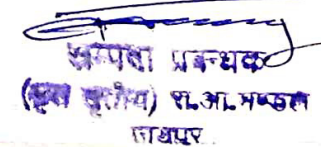 सम्पदा प्रबन्धक
(वृत्त तृतीय) रा. आ. मण्डल
जयपुर